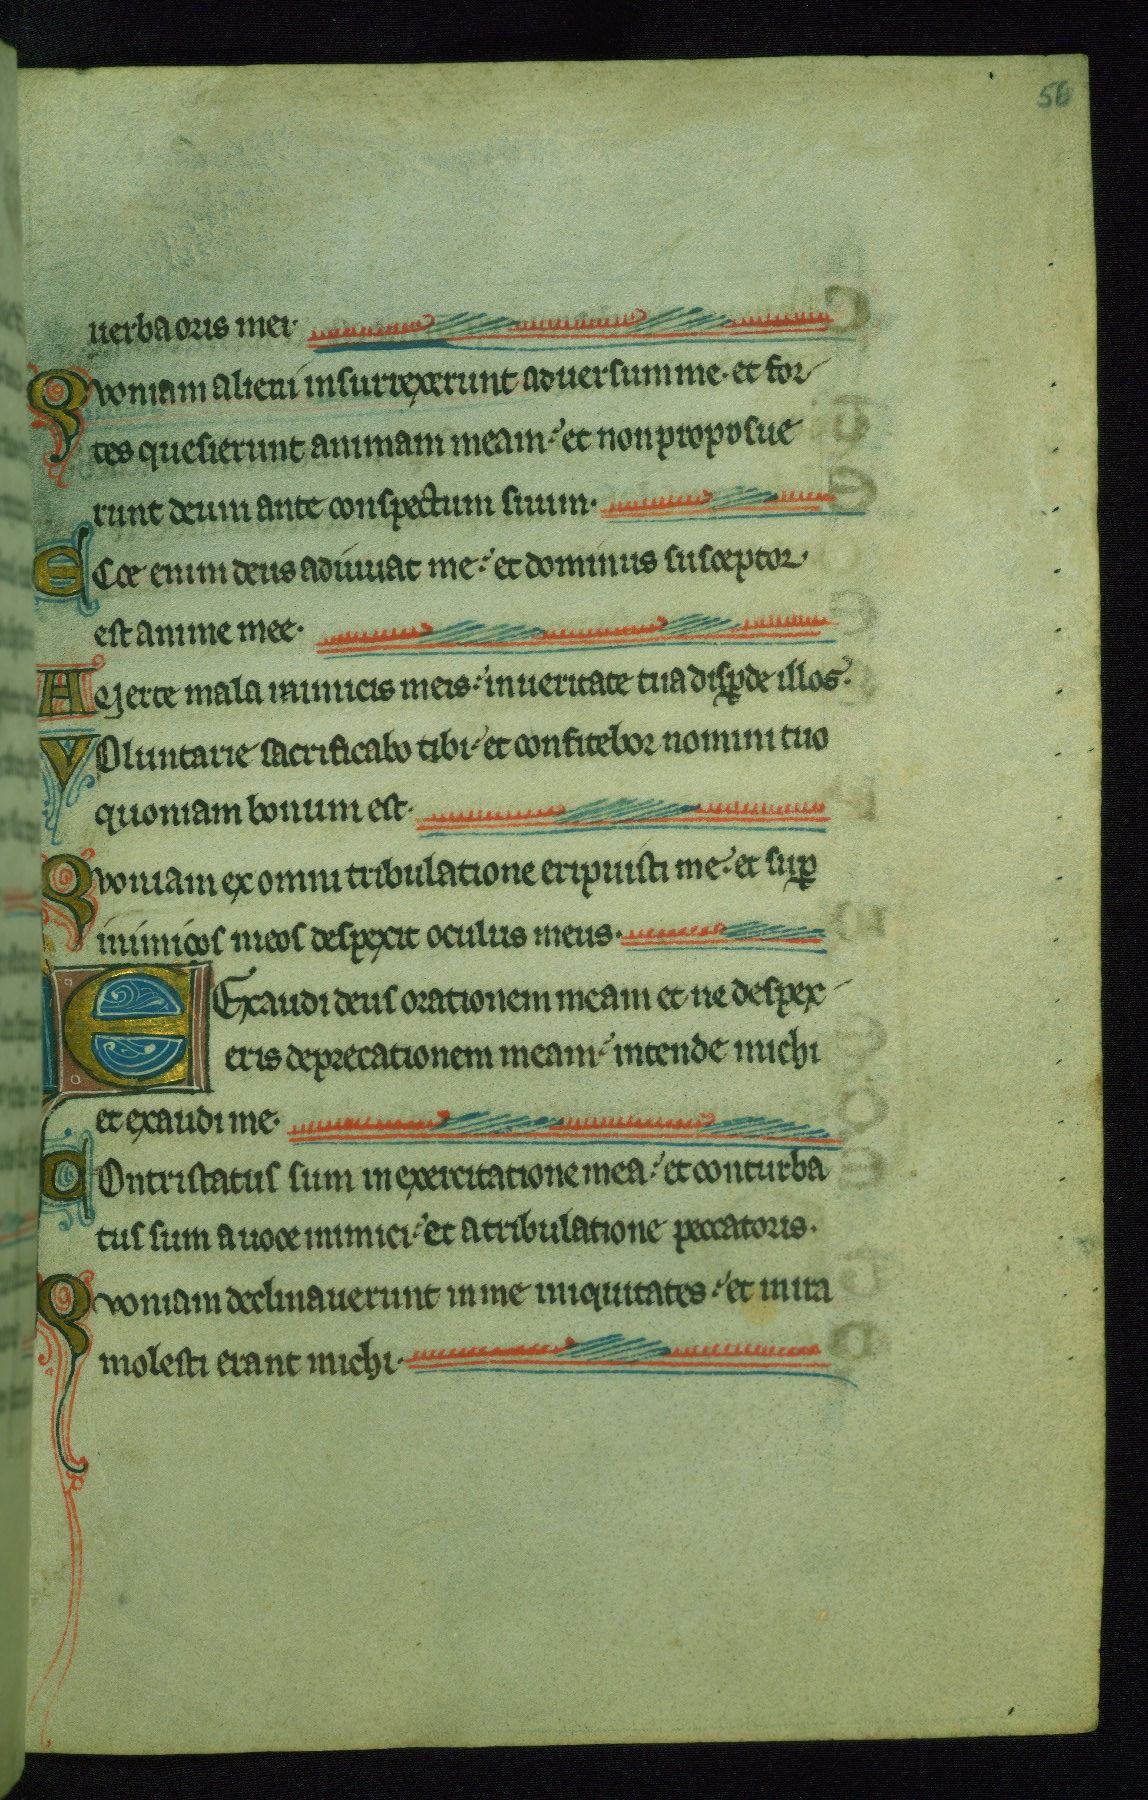 56
uerba oris mei·
Quoniam alieni insurrexerunt aduersum me· et for
tes quesierunt animam meam· et non proposue
runt deum ante conspectum suum·
Ecce enim deus adiuuat me· et dominus susceptor
est anime mee·
Auerte mala inimicis meis· in ueritate tua disꝑde illos·
Voluntarie sacrificabo tibi· et confitebor nomini tuo
quoniam bonum est·
Quoniam ex omni tribulatione eripuisti me· et suꝑ
inimicos meos despexit oculus meus·
Exaudi deus orationem meam et ne despex
eris deprecationem meam· intende michi
et exaudi me·
Contristatus sum in exercitatione mea· et conturba
tus sum a uoce inimici· et a tribulatione peccatoris·
Quoniam declinauerunt in me iniquitates· et in ira
molesti erant michi·